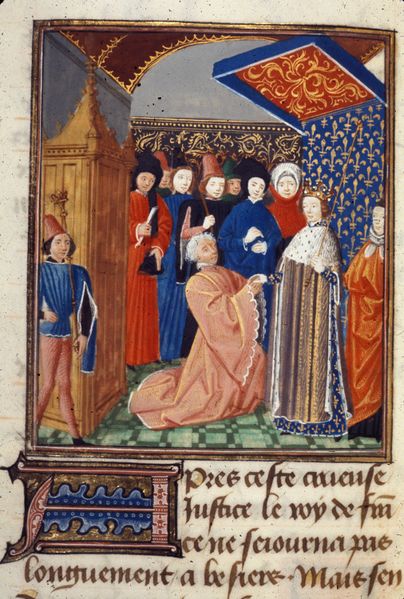 Apres ceste crueuse
Justice le roy de frā
ce ne seiourna pas
longuement a besiers. Mais sen